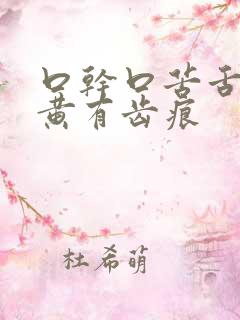 口幹口苦舌
黄有齿痕
杜希萌